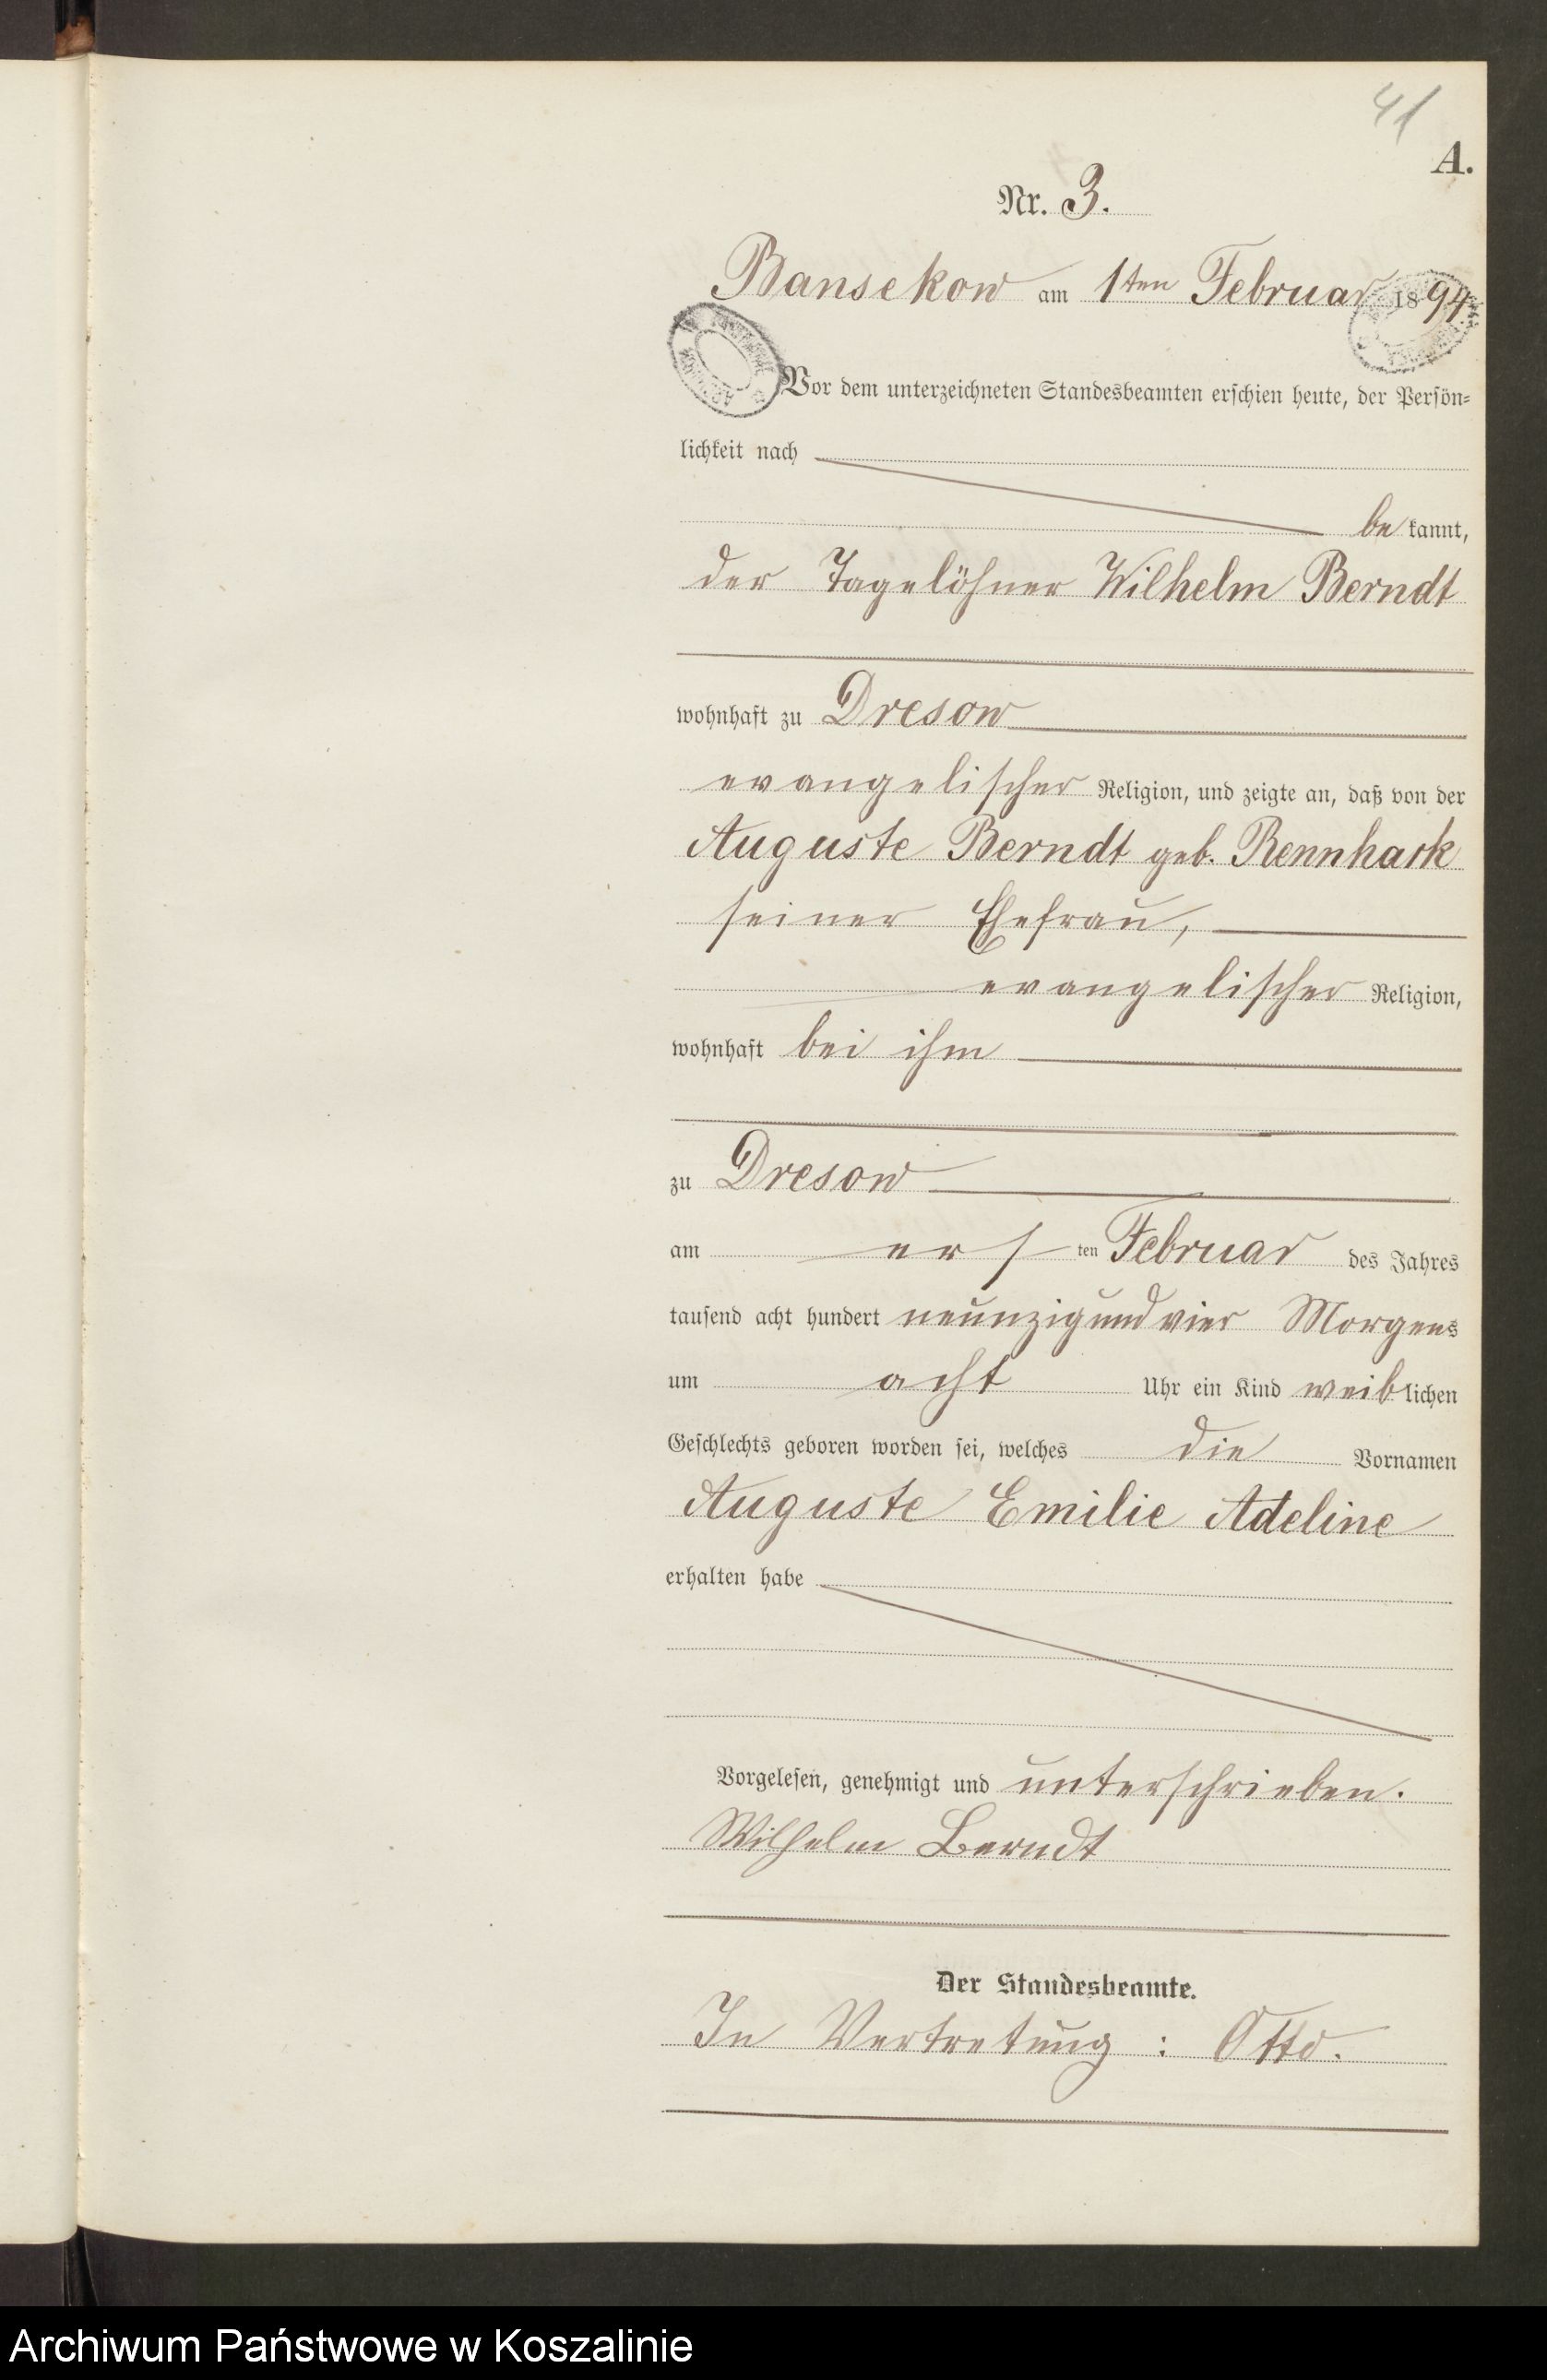 41
A.
Nr. 3.
Bansekow am 1ten Februar 1894
Vor dem unterzeichneten Standesbeamten erschien heute, der Persön-
lichkeit nach
be kannt,
der Tagelöhner Wilhelm Berndt
wohnhaft zu Dresow
evangelischer Religion, und zeigte an, daß von der
Auguste Berndt geb. Rennhack
seiner Ehefrau,
evangelischer Religion,
wohnhaft bei ihm
zu Dresow
am ers ten Februar des Jahres
tausend acht hundert neunzig und vier Morgens
um acht Uhr ein Kind weiblichen
Geschlechts geboren worden sei, welches die Vornamen
Auguste Emilie Adeline
erhalten habe
Vorgelesen, genehmigt und unterschrieben.
Wilhelm Berndt
Der Standesbeamte.
In Vertretung: Otto.
Archiwum Państwowe w Koszalinie